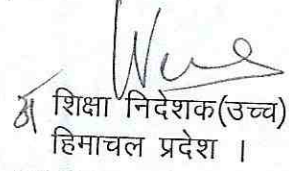 शिक्षा निदेशक(उच्च)
हिमाचल प्रदेश ।